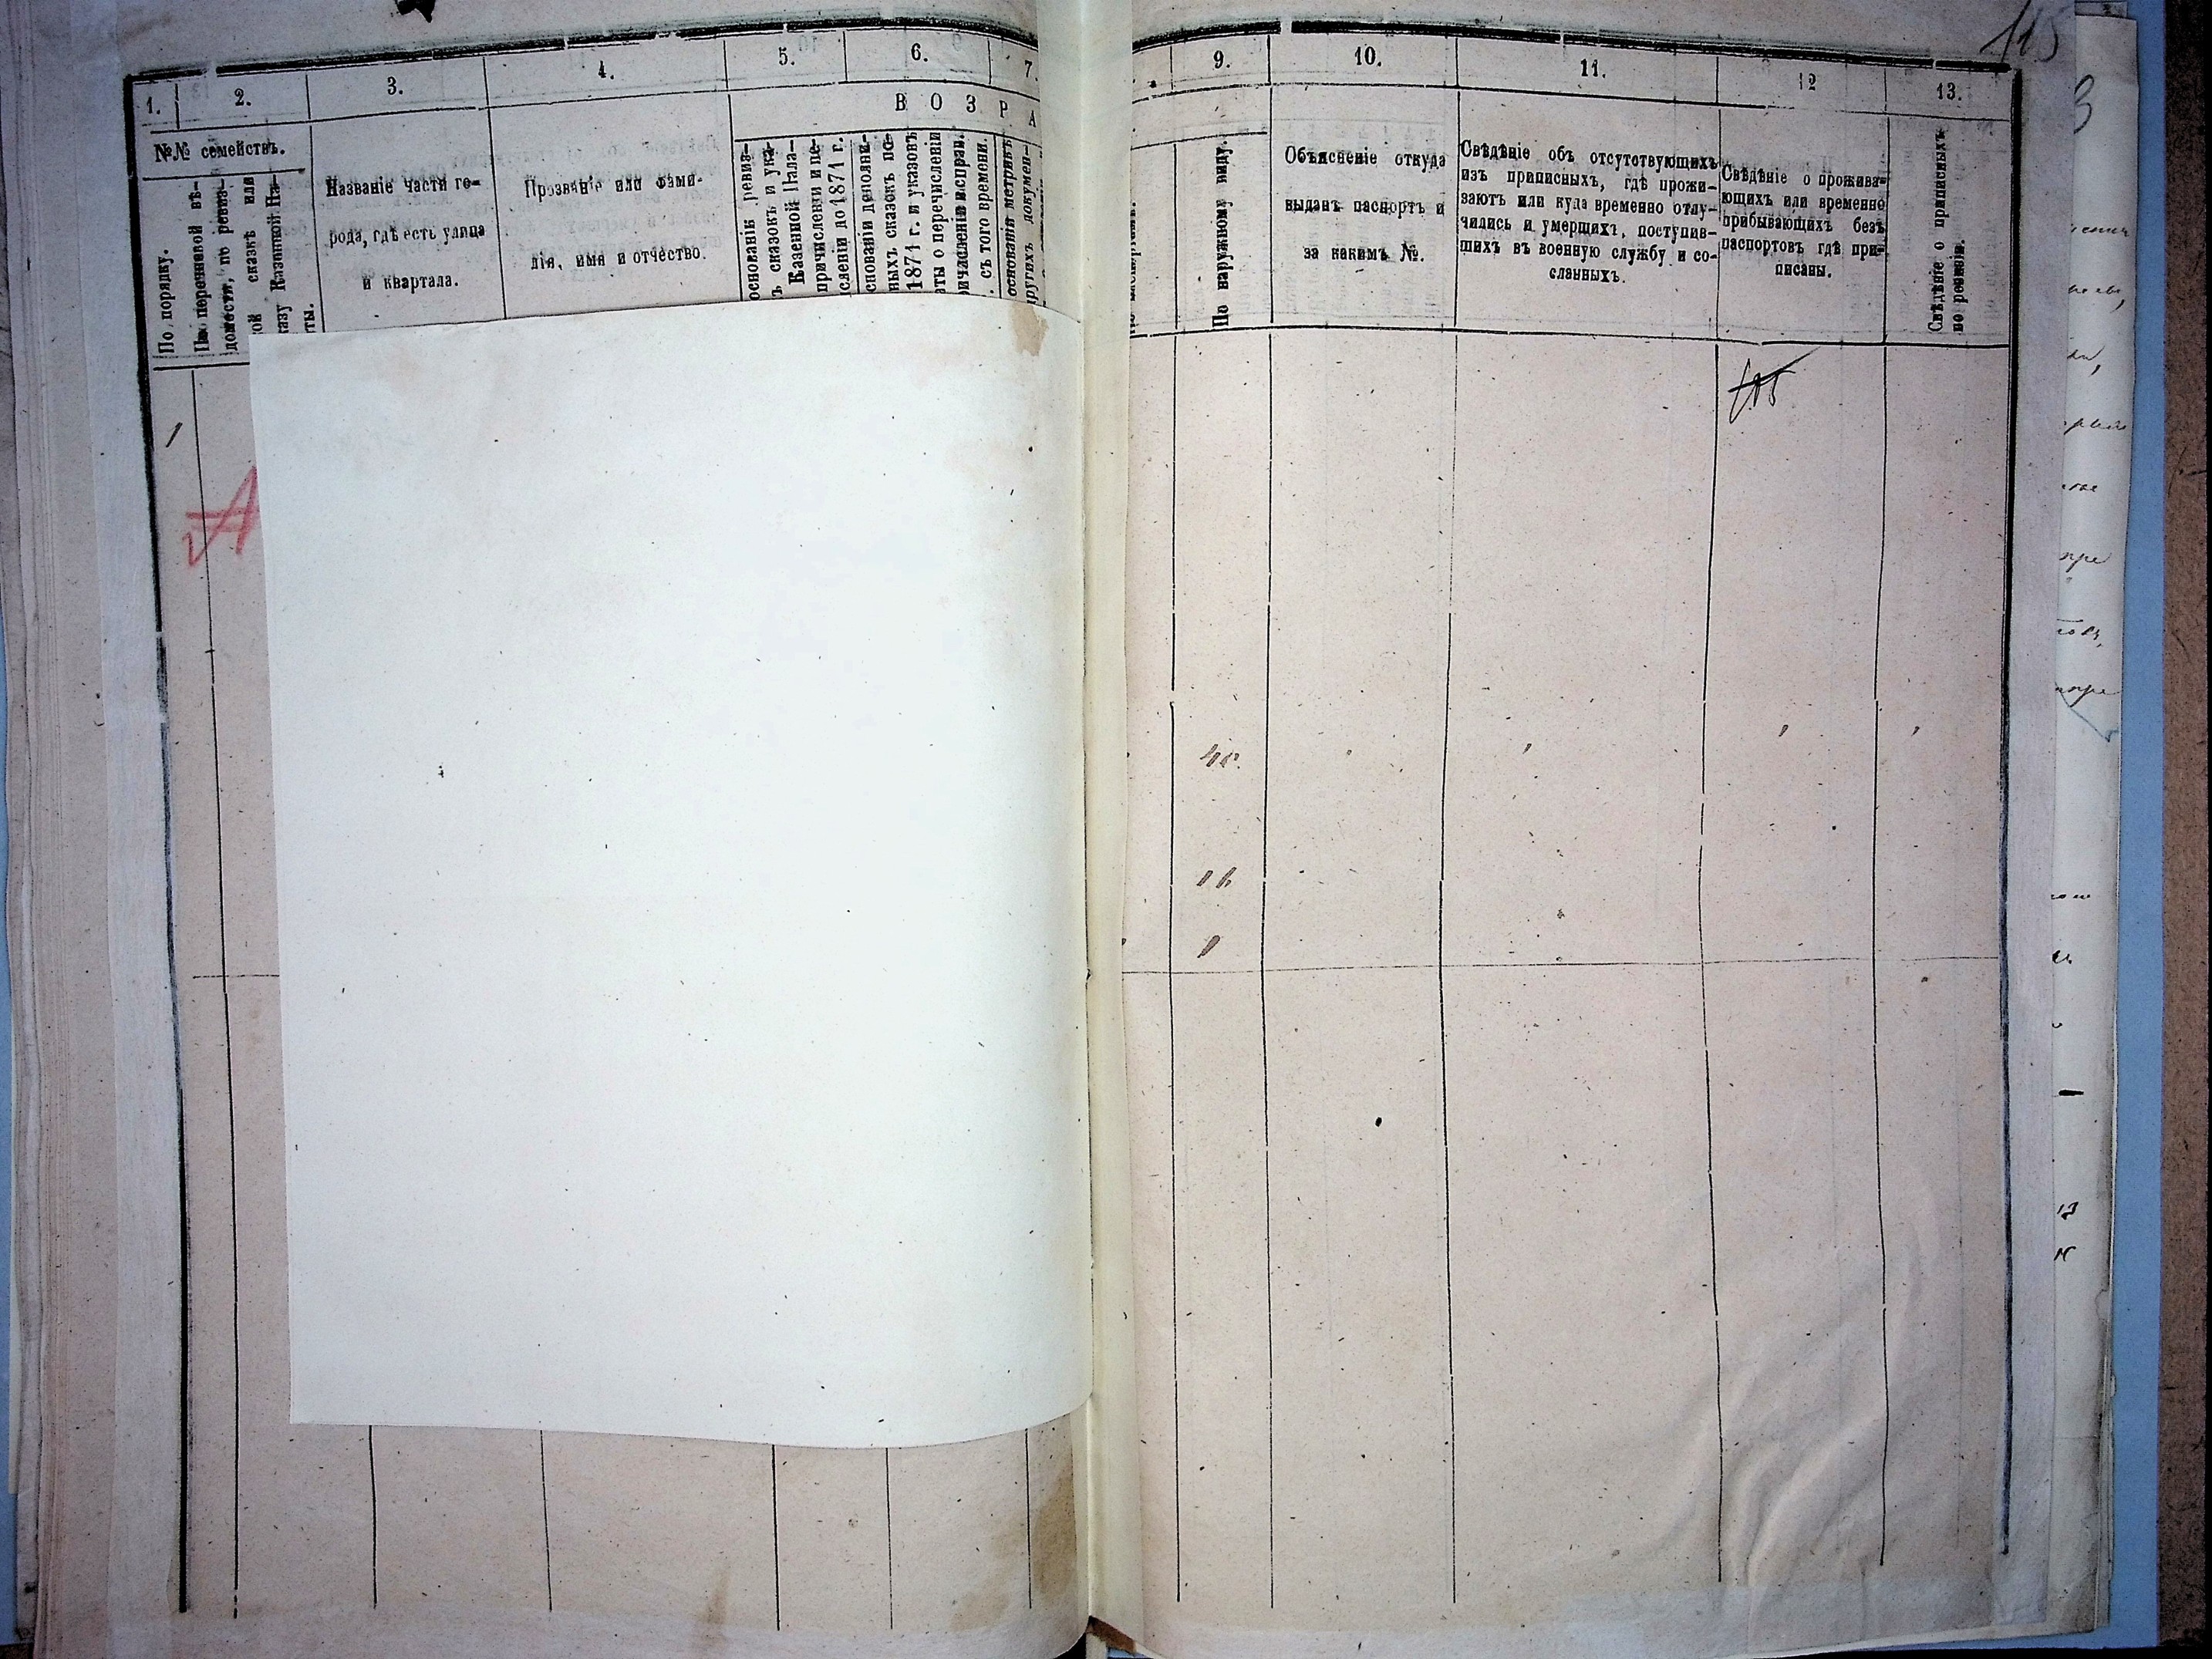 115
1. 2. 3. 4. 5. 6. 7.
В О З Р А
№№ семействъ.
По порядку.
По перечневой вѣ-
домости, по ревиз-
ой сказкѣ или
казу Казенной Па-
ты.
Названіе части го-
рода, гдѣ есть улица
и квартала.
Прозваніе или фами-
лія, имя и отчество.
основаніи ревиз-
ъ сказокъ и ука-
Казенной Пала-
причисленіи и пе-
сленіи до 1871 г.
основаніи дополни-
ныхъ сказокъ по-
1871 г. и указовъ
аты о перечисленіи
ричисленіи исправ.
съ того времени.
основаніи метрикъ
другихъ докумен-
1
А
9. 10. 11. 12 13.
По наружному виду.
Объясненіе откуда
выданъ паспортъ и
за какимъ №.
Свѣдѣніе объ отсутствующихъ
изъ приписныхъ, гдѣ прожи-
ваютъ или куда временно отлу-
чились и умершихъ, поступив-
шихъ въ военную службу и со-
сланныхъ.
Свѣдѣніе о прожива-
ющихъ или временно
прибывающихъ безъ
паспортовъ гдѣ при-
писаны.
Свѣдѣніе о приписныхъ
по ревизіи.
1